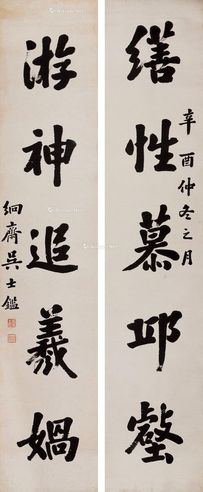 繕性慕邱壑
辛酉仲冬之月
游神追羲媧
絅齋吳士鑑